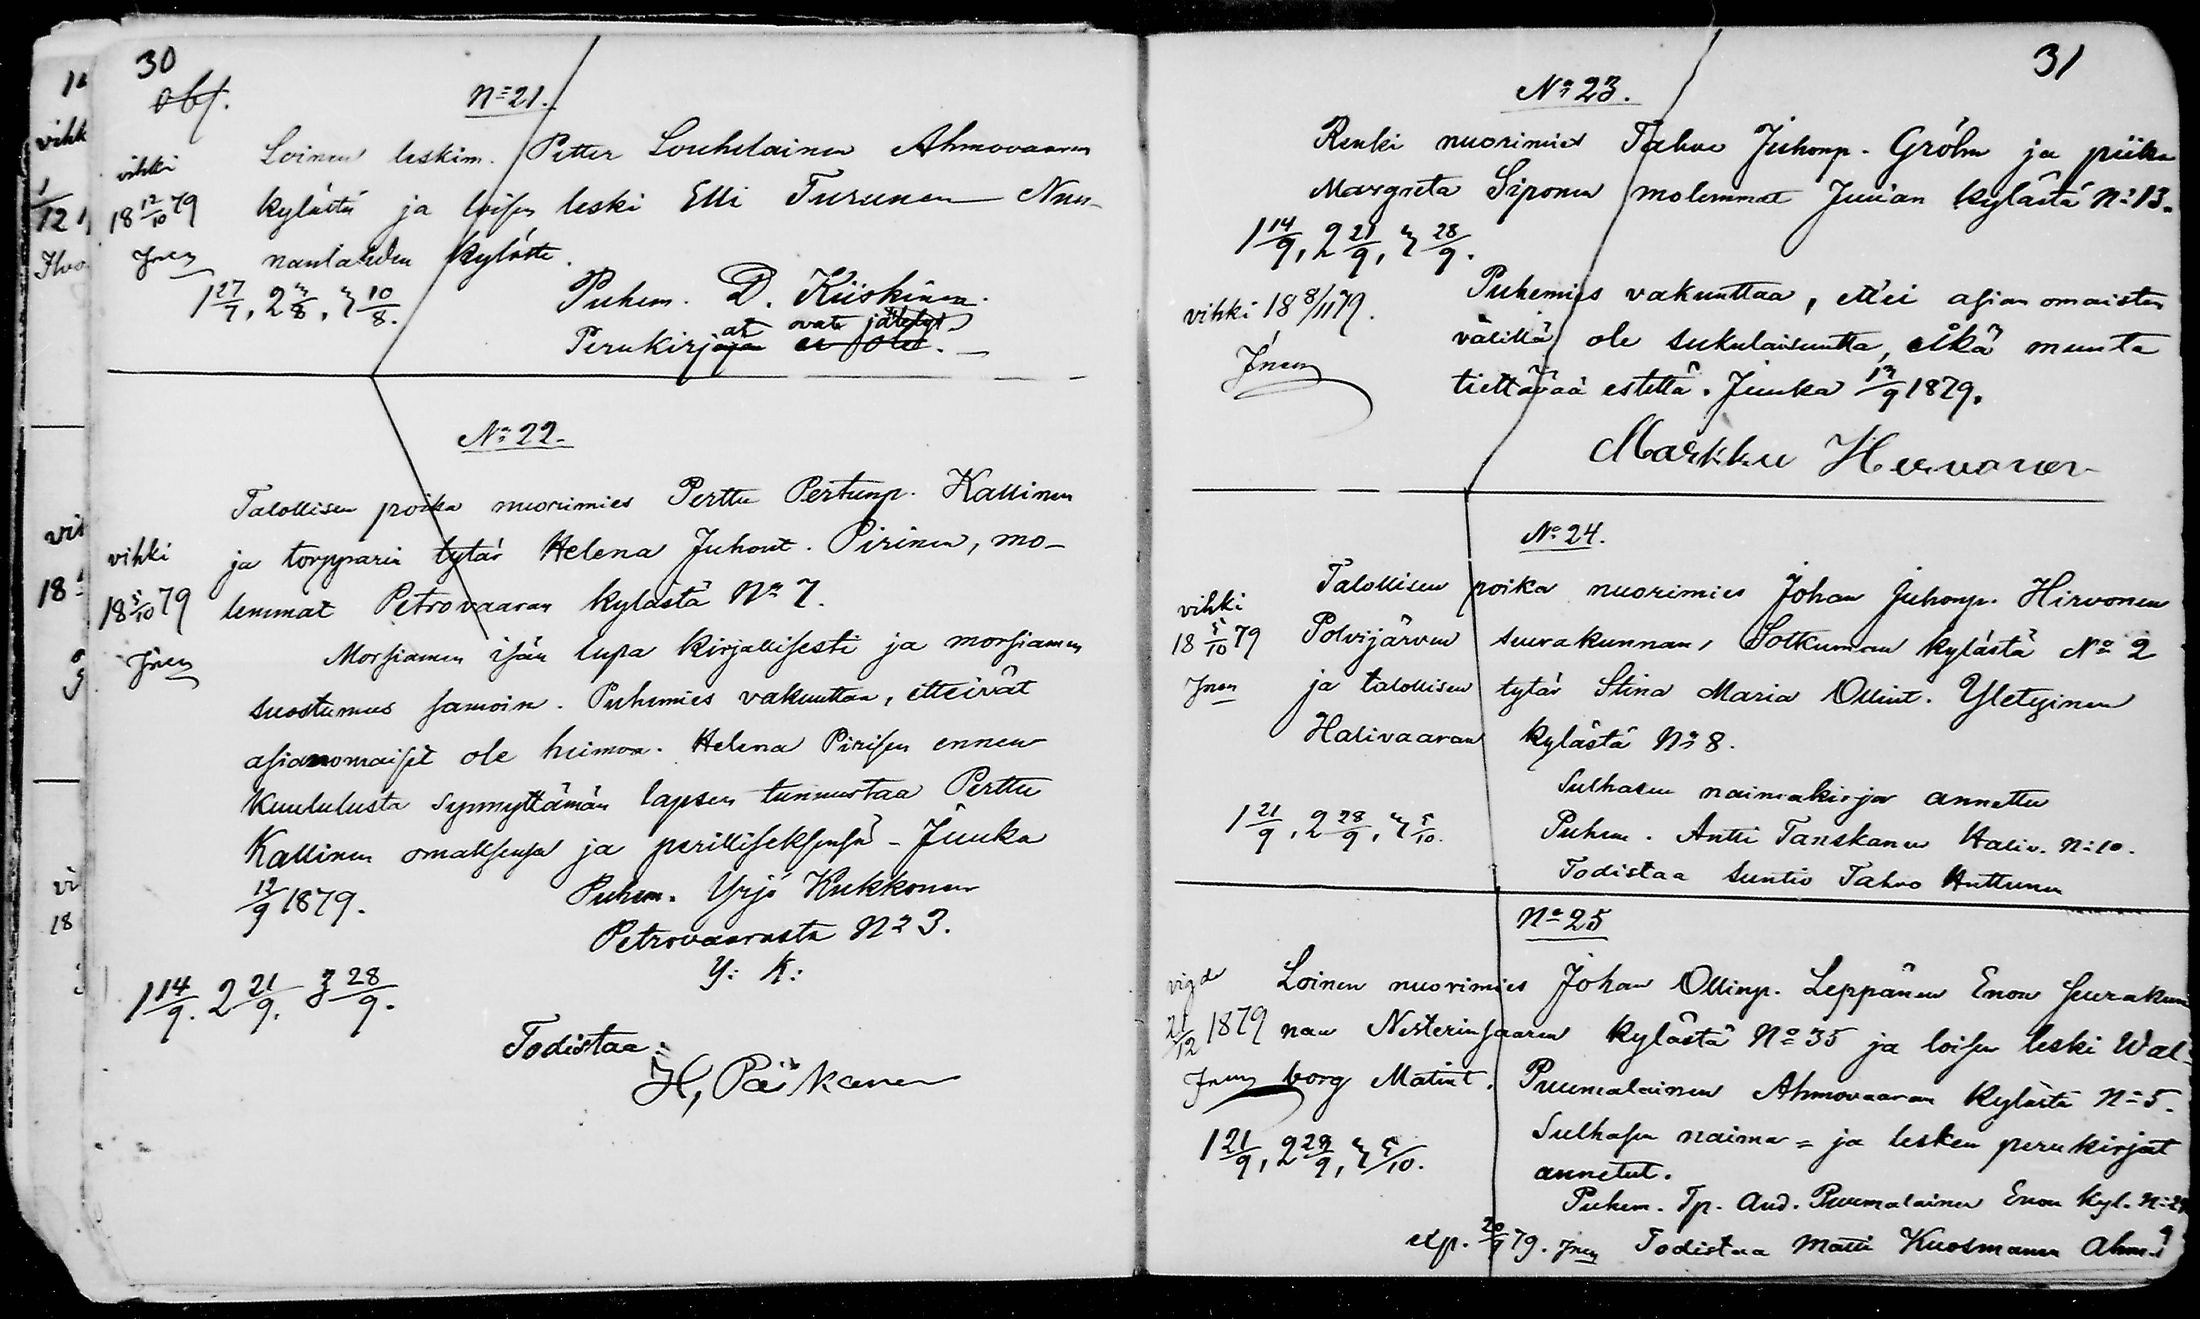 30
obs.
No 21.
Loinen leskim. Petter Louhelainen Ahmovaaran
vihki
18 12/10 79 kylästä ja loisen leski Elli Turunen Nun-
Jnen nanlahden kylästä.
1 27/7, 2 3/8, 3 10/8.
Puhem. D. Kiiskinen.
Perukirjat ovat jätetyt.
No 22.
Talollisen poika nuorimies Perttu Pertunp. Kallinen
vihki ja torpparin tytär Helena Juhont. Pirinen, mo-
18 5/10 79 lemmat Petrovaaran kylästä No 7.
Jnen Morsiamen isän lupa kirjallisesti ja morsiamen
suostumus samoin. Puhemies vakuuttaa, etteivät
asianomaiset ole heimoa. Helena Pirisen ennen
kuulutusta synnyttämän lapsen tunnustaa Perttu
Kallinen omaksensa ja perilliseksensä - Juuka
12/9 1879. Puhem. Yrjö Kukkonen
Petrovaarasta No 3.
Y: K:
1 14/9. 2 21/9. 3 28/9.
Todistaa:
H, Päikänen
31
No 23.
Renki nuorimies Tahvo Juhonp. Gröhn ja piika
Margreta Siponen molemmat Juuan kylästä No 13.
1 14/9, 2 21/9, 3 28/9.
Puhemies vakuuttaa, ett'ei asian omaisten
vihki 18 8/11 79. välillä ole sukulaisuutta, eikä muuta
Jnen tiettävää estettä. Juuka 13/9 1879.
Markku Hirvonen
No 24.
Talollisen poika nuorimies Johan Juhonp. Hirvonen
vihki
18 5/10 79 Polvijärven seurakunnan, Sotkuman kylästä No 2
Jnen ja talollisen tytär Stina Maria Ollint. Yletyinen
Halivaaran kylästä No 8.
Sulhasen naimakirja annettu
1 21/9, 2 28/9, 3 5/10. Puhem. Antti Tanskanen Haliv. No 10.
Todistaa suntio Tahvo Huttunen
No 25
vigd Loinen nuorimies Johan Ollinp. Leppänen Enon seurakun
21/12 1879 nan Nesterinsaaren kylästä No 35 ja loisen leski Wal-
Jnen borg Matint. Puumalainen Ahmovaaran kylästä No 5.
Sulhasen naima= ja lesken perukirjat
1 21/9, 2 28/9, 3 5/10.
annetut.
Puhem. Tp. And. Puumalainen Enon kyl. No 29
exp. 20/9 79. Jnen Todistaa Matti Kuosmanen Ahm. 9